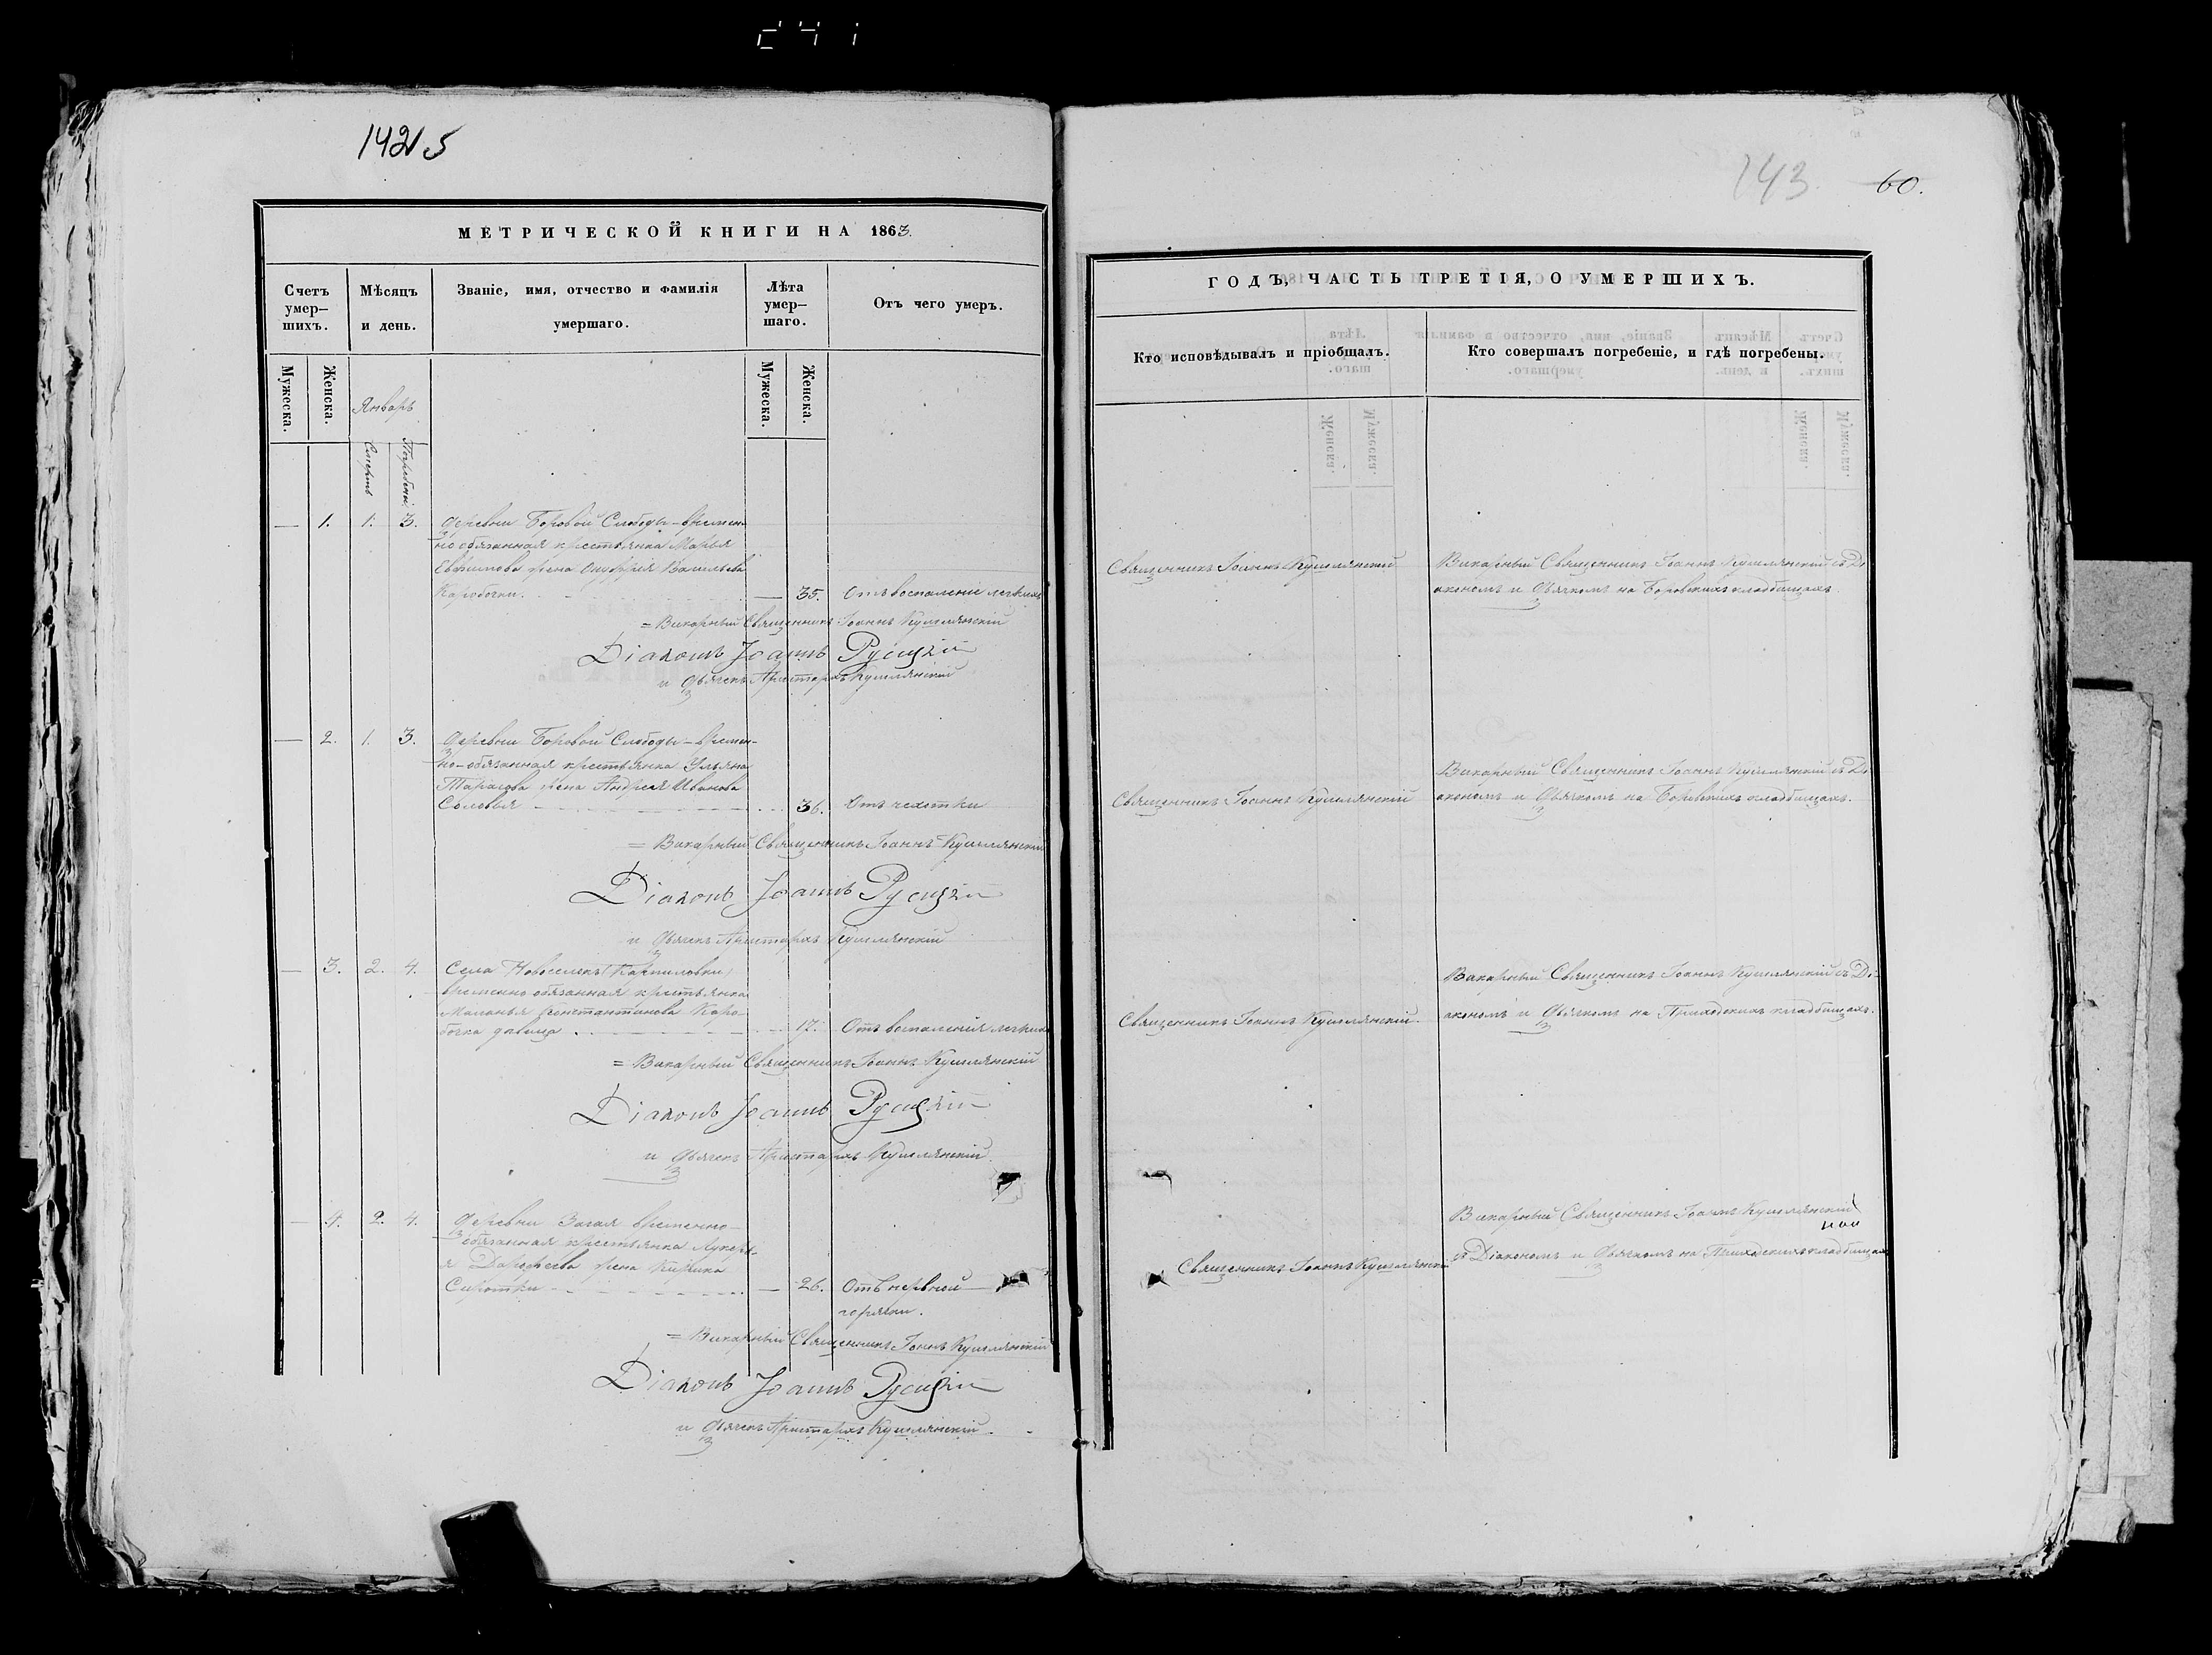 142 5
МЕТРИЧЕСКОЙ КНИГИ НА 1863.
Счетъ умер—шихъ.
Мѣсяцъ и день.
Званіе, имя, отчество и фамилія умершаго.
Лѣта умер—шаго.
Отъ чего умеръ.
Мужеска.
Женска.
Январь
Смерть
Погребенія
Мужеска.
Женска.
— 1. 1. 3. Деревни Боровой Слободы – времен-
но обязанная крестьянка Марья
Евфимова жена Онуфрія Васильева
Коробочки. — 35. Отъ воспаленія легкихъ
= Викарный Священникъ Іоаннъ Кушлянскій
Діаконъ Іоаннъ Русицкій
и Дьячекъ Аристархъ Кушлянскій
— 2. 1. 3. Деревни Боровой Слободы – времен-
но-обязанная крестьянка Ульяна
Тарасова жена Андрея Иванова
Соловья — 36. Отъ чахотки
= Викарный Священникъ Іоаннъ Кушлянскій
Діаконъ Іоаннъ Русицкій
и Дьячекъ Аристархъ Кушлянскій
— 3. 2. 4. Села Новоселокъ (Карпиловки)
временно обязанная крестьянка
Маланья Константинова Коро-
бочка девица 17. Отъ воспаленія легкихъ
= Викарный Священникъ Іоаннъ Кушлянскій
Діаконъ Іоаннъ Русицкій
и Дьячекъ Аристархъ Кушлянскій
— 4. 2. 4. Деревни временно-
обязанная крестьянка Лукерь-
я Дорофеева жена Кирика
Сиротки — 26. Отъ нервной
горячки.
= Викарный Священникъ Іоаннъ Кушлянскій
Діаконъ Іоаннъ Русицкій
и Дьячекъ Аристархъ Кушлянскій.
143 60.
ГОДЪ, ЧАСТЬ ТРЕТІЯ, О УМЕРШИХЪ.
Кто исповѣдывалъ и пріобщалъ.
Кто совершалъ погребеніе, и гдѣ погребены.
Священникъ Іоаннъ Кушлянскій
Викарный Священникъ Іоаннъ Кушлянскій съ Ді-
акономъ и Дьячкомъ на Боровскихъ кладбищахъ.
Священникъ Іоаннъ Кушлянскій
Викарный Священникъ Іоаннъ Кушлянскій съ Ді-
акономъ и Дьячкомъ на Боровскихъ кладбищахъ.
Священникъ Іоаннъ Кушлянскій.
Викарный Священникъ Іоаннъ Кушлянскій съ Ді-
акономъ и Дьячкомъ на Приходскихъ кладбищахъ.
Священникъ Іоаннъ Кушлянскій
Викарный Священникъ Іоаннъ Кушлянскій
съ Діакономъ и Дьячкомъ на Приходскихъ кладбищахъ